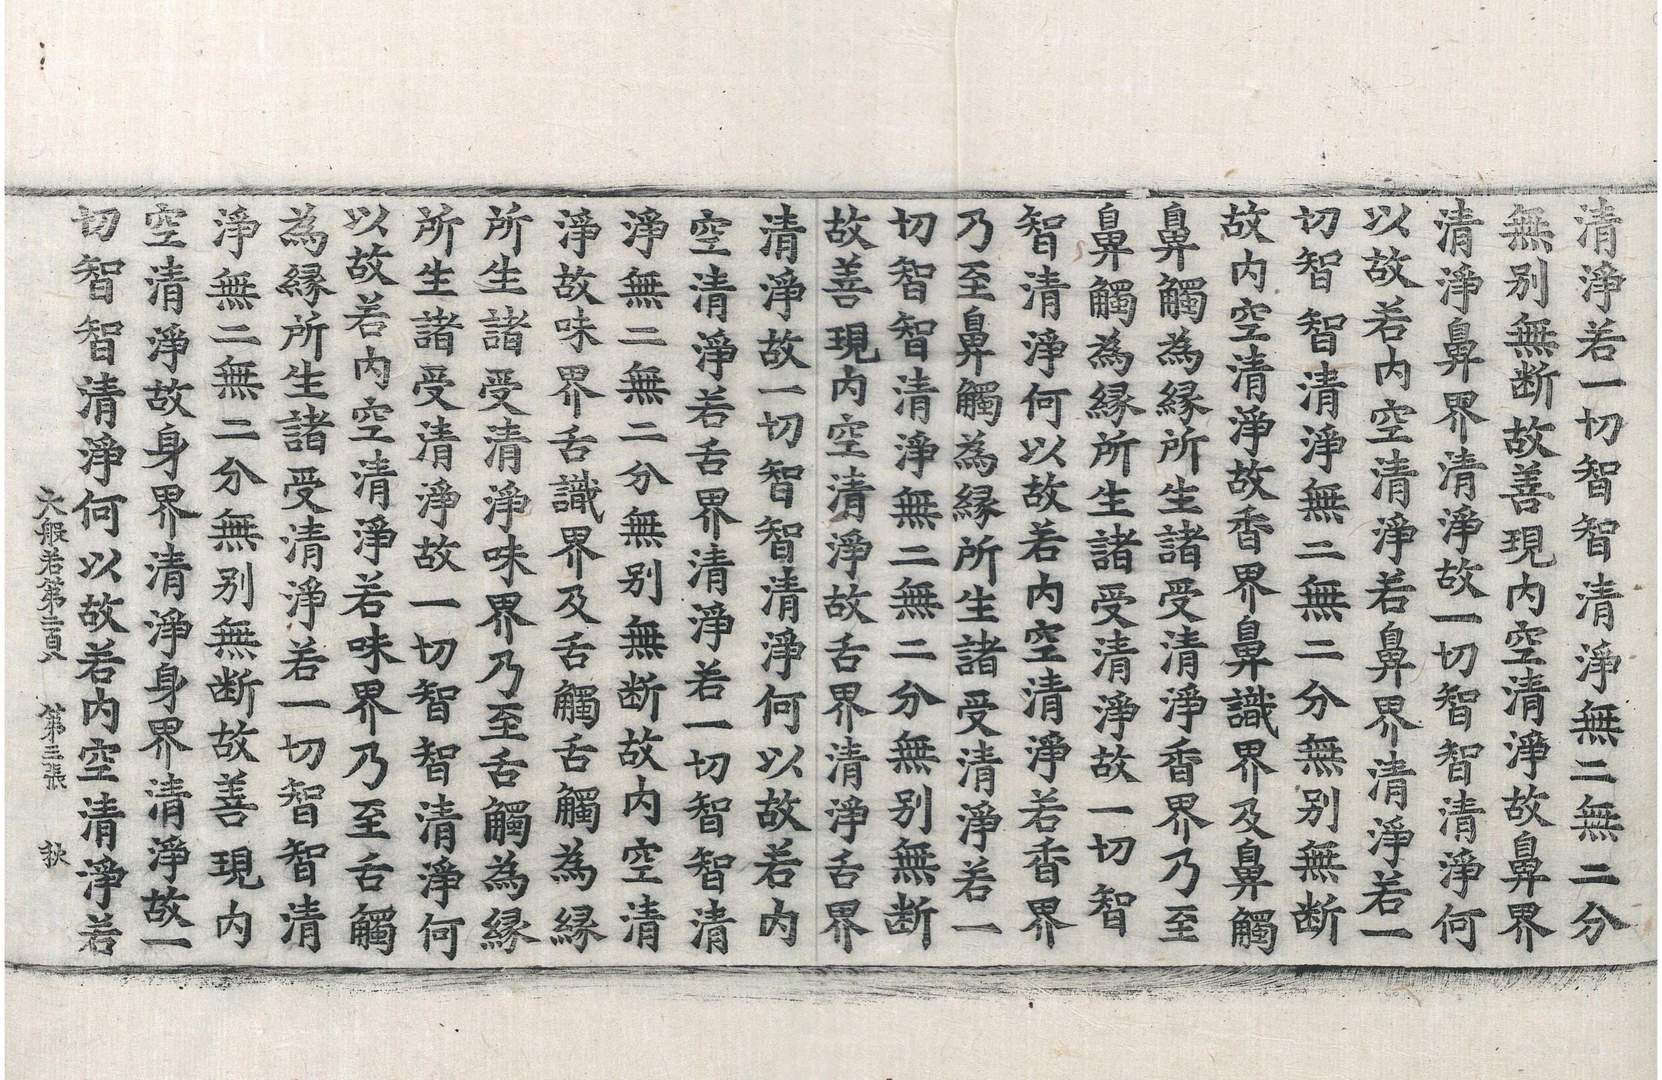 清淨若一切智智清淨無二無二分
無别無断故善現内空清淨故鼻界
清淨鼻界清淨故一切智智清淨何
以故若内空清淨若鼻界清淨若一
切智智清淨無二無二分無别無断
故内空清淨故香界鼻識界及鼻觸
鼻觸為縁所生諸受清淨香界乃至
鼻觸為縁所生諸受清淨故一切智
智清淨何以故若内空清淨若香界
乃至鼻觸為縁所生諸受清淨若一
切智智清淨無二無二分無别無断
故善現内空清淨故舌界清淨舌界
清淨故一切智智清淨何以故若内
空清淨若舌界清淨若一切智智清
淨無二無二分無别無断故内空清
淨故味界舌識界及舌觸舌觸為縁
所生諸受清淨味界乃至舌觸為縁
所生諸受清淨故一切智智清淨何
以故若内空清淨若味界乃至舌觸
為縁所生諸受清淨若一切智智清
淨無二無二分無别無断故善現内
空清淨故身界清淨身界清淨故一
切智智清淨何以故若内空清淨若
大般若第二百八 第三張 秋